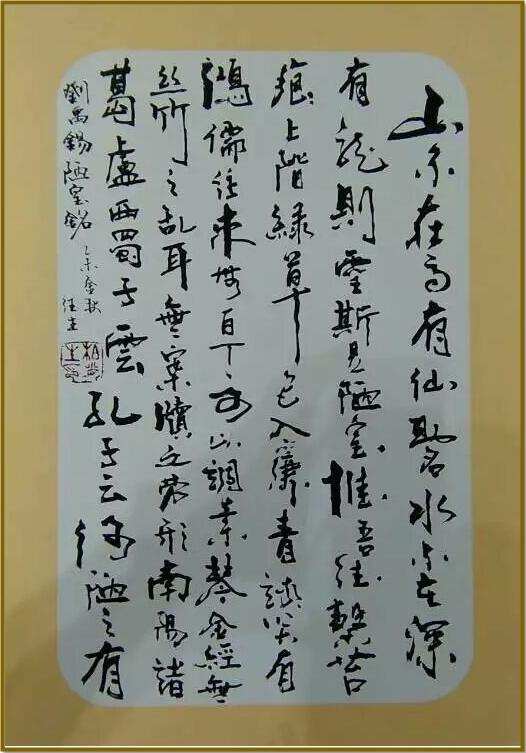 山不在高有仙則名水不在深
有龍則靈斯是陋室惟吾德馨苔
痕上階緑草色入簾青談笑有
鴻儒往來無白丁可以調素琴金經無
絲竹之乱耳無案牘之勞形南陽諸
葛盧西蜀子雲孔子云何陋之有
劉禹錫陋室銘 乙未金秋